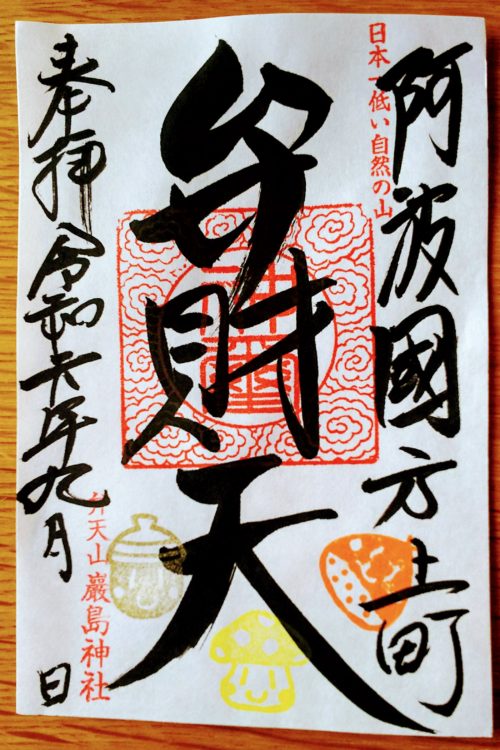 阿波國方上町
日本一低い自然の山
弁財天
弁天山 巌島神社
奉拝 令和六年九月 日